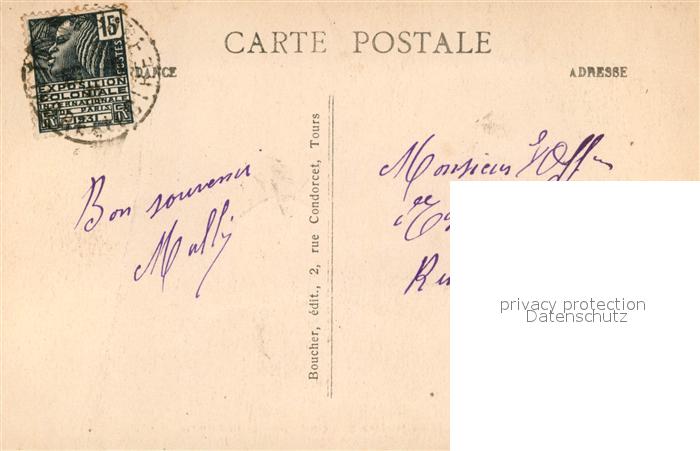 CARTE POSTALE
15c
POSTES
EXPOSITION
COLONIALE
INTERNATIONALE
DE PARIS
1931
DANCE
ADRESSE
Bon souvenir
Boucher, édit., 2, rue Condorcet, Tours
Monsieur
privacy protection
Datenschutz